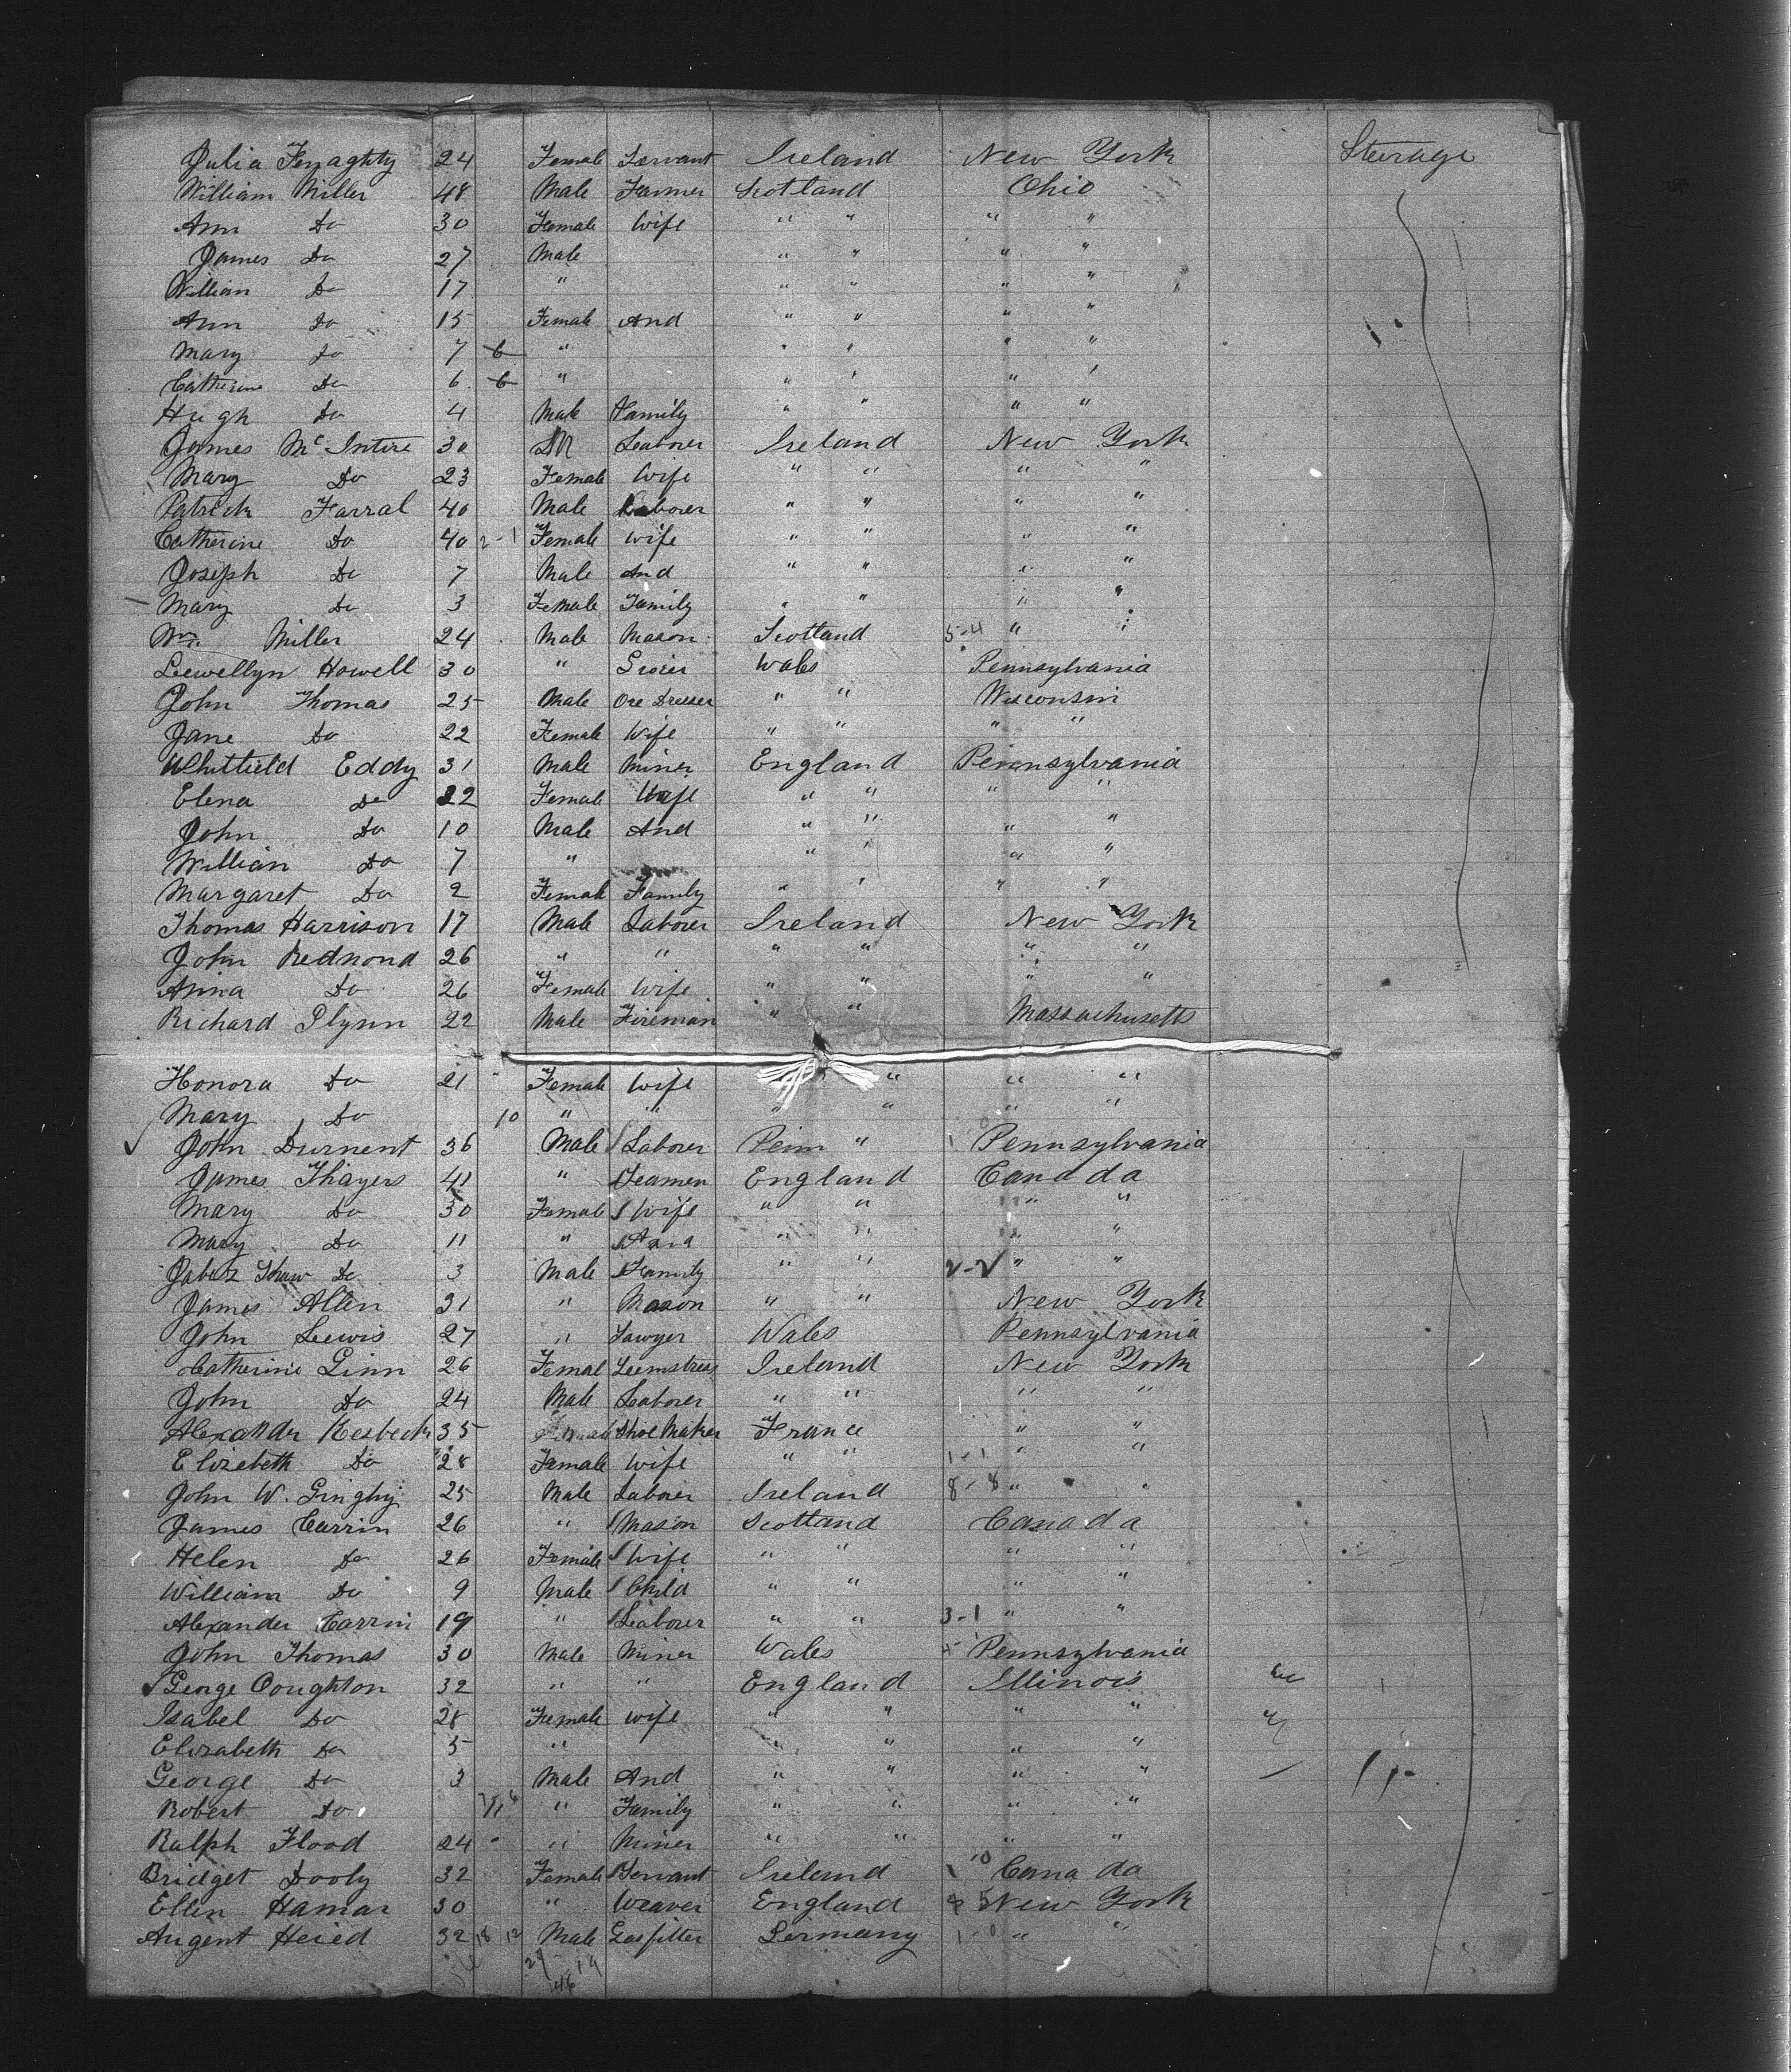 Julia Fenaghty 24 Female Servant Ireland New York Steerage
William Miller 48 Male Farmer Scotland Ohio
Ann Do 30 Female Wife " " " "
James Do 27 Male " " " "
William Do 17 " " " " "
Ann Do 15 Female And " " " "
Mary Do 7 6 " " " " "
Catherine Do 6 6 " " " " "
Hugh Do 4 Male Family " " " "
James McIntire 30 M Laborer Ireland New York
Mary Do 23 Female Wife " " " "
Patrick Farral 40 Male Laborer " " " "
Catherine Do 40 2-1 Female Wife " " " "
Joseph Do 7 Male And " " " "
Mary Do 3 Female Family " " " "
Wm Miller 24 Male Mason Scotland 5-4 " "
Lewellyn Howell 30 " Wales Pennsylvania
John Thomas 25 Male Ore Dresser " " Wisconsin
Jane Do 22 Female Wife " " " "
Whitfield Eddy 31 Male Miner England Pennsylvania
Elena Do 22 Female Wife " " " "
John Do 10 Male And " " " "
William Do 7 " " " " "
Margaret Do 2 Female Family " " " "
Thomas Harrison 17 Male Laborer Ireland New York
John Redmond 26 " " " " " "
Anna Do 26 Female Wife " " " "
Richard Flynn 22 Male Fireman " " Massachusetts
Honora Do 21 Female Wife " " "
Mary Do 10 " " " " " "
John Durnent 36 Male Laborer Penn " Pennsylvania
James Thayers 41 " Seamen England Canada
Mary Do 30 Female Wife " " " "
Mary Do 11 " And " " " "
Jabez Shaw Do 3 Male Family " " 2-2 " "
James Allen 31 " Mason " " New York
John Lewis 27 " Sawyer Wales Pennsylvania
Catherine Linn 26 Femal Seemstress Ireland New York
John Do 24 Male Laborer " " " "
Alexander Kesbeck 35 Shoe Maker France " "
Elizebeth Do 28 Female Wife " " 1-1 " "
John W. 25 Male Laborer Ireland 8-8 " "
James Carrin 26 " Mason Scotland Canada
Helen Do 26 Female Wife " " " "
William Do 9 Male Child " " " "
Alexander Carrin 19 " Laborer " " 3-1 " "
John Thomas 30 Male Miner Wales Pennsylvania
George Coughton 32 " " England Illinois
Isabel Do 28 Female Wife " " " "
Elizabeth Do 5 " " " " "
George Do 3 Male And " " " "
Robert Do " Family " " " "
Ralph Flood 24 " Miner " " " "
Bridget Dooly 32 Female Servant Ireland Canada
Ellen Hamar 30 " Weaver England New York
Augent Heied 32 18 12 Male Gasfitter Germany 1-0 " "
29 19
46